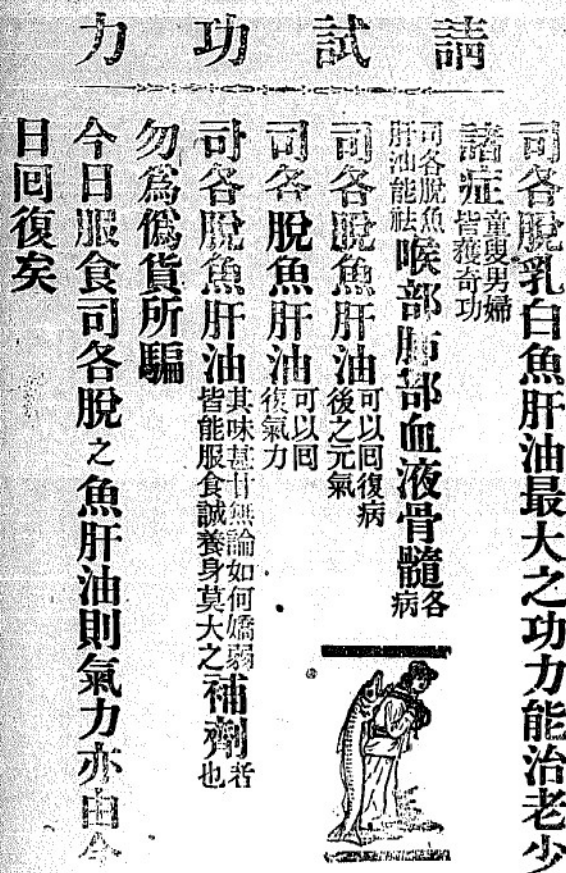 請試功力
司各脫乳白魚肝油最大之功力能治老少
諸症童叟男婦皆獲奇功
司各脫魚肝油能祛喉部肺部血液骨髓各病
司各脫魚肝油可以回復病後之元氣
司各脫魚肝油可以回復氣力
司各脫魚肝油其味甚甘無論如何嬌弱皆能服食誠養身莫大之補劑者也
勿爲僞貨所騙
今日服食司各脫之魚肝油則氣力亦由今
日回復矣